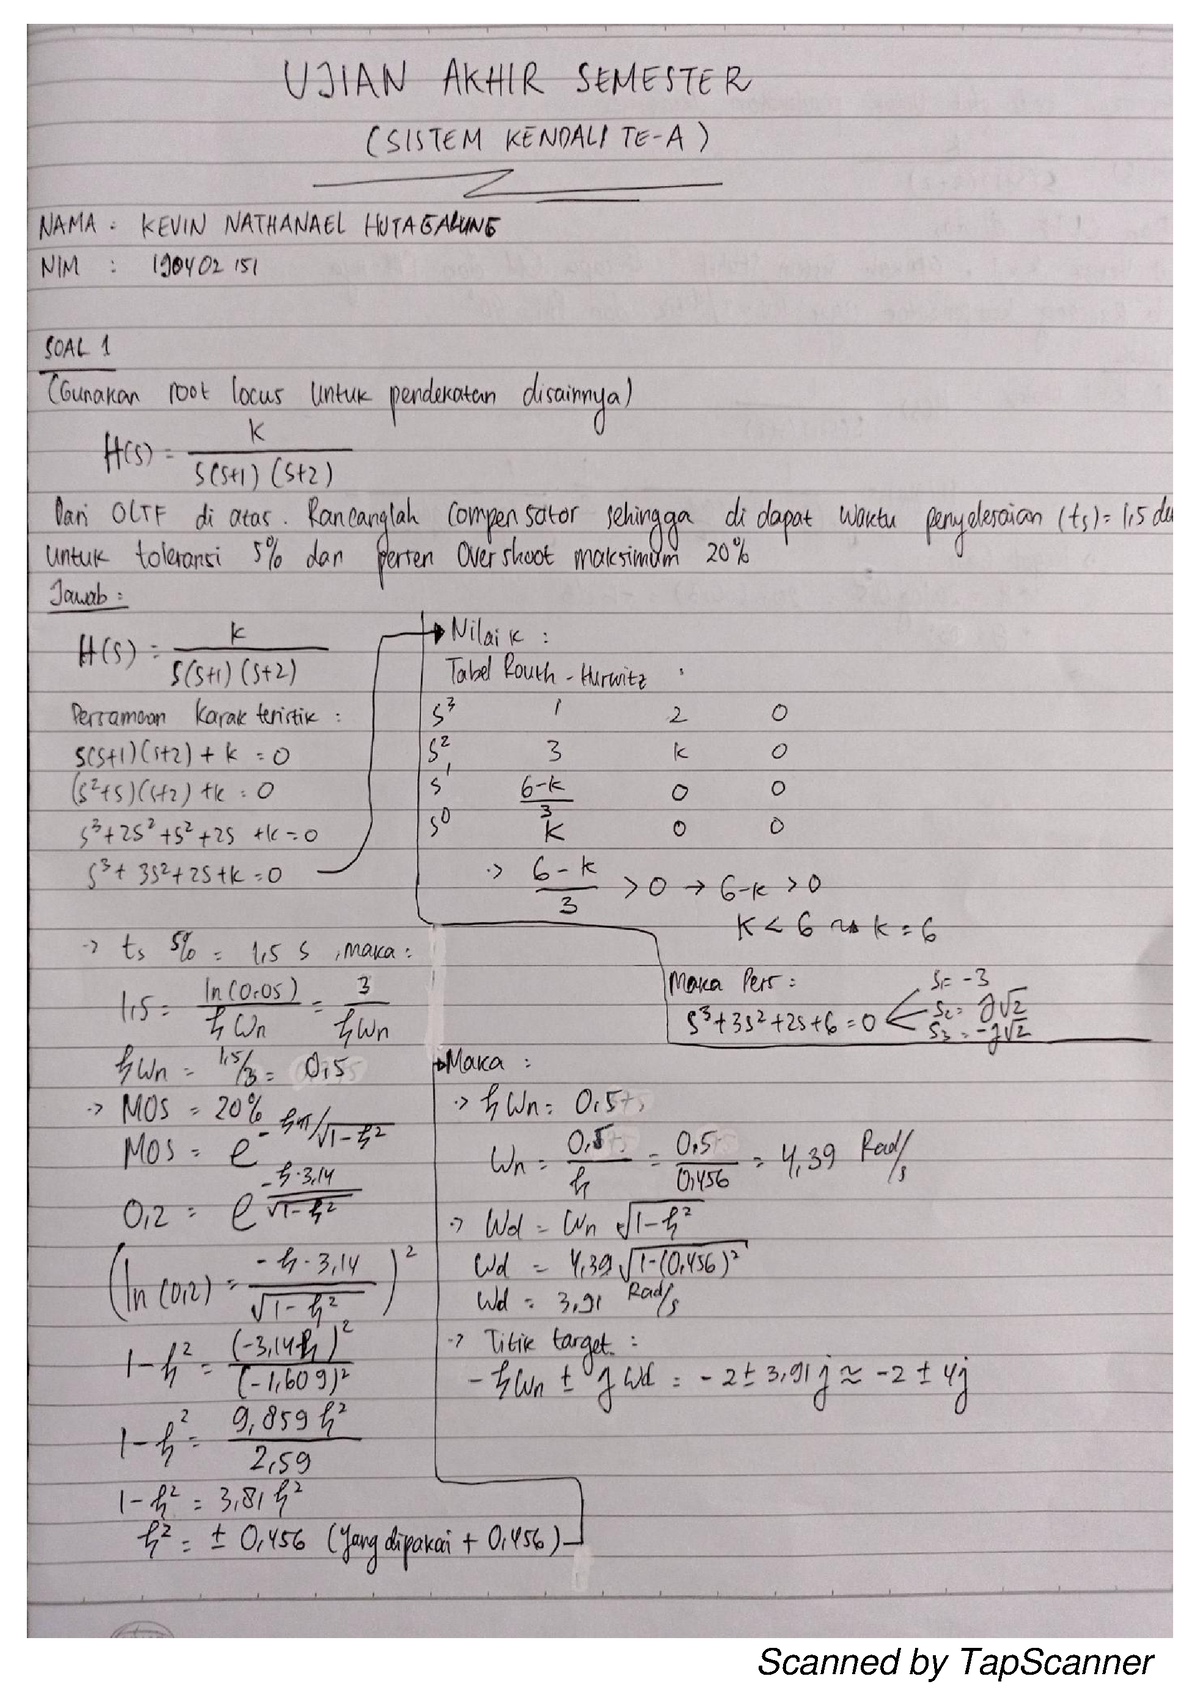 UJIAN AKHIR SEMESTER
(SISTEM KENDALI TE-A)
NAMA : KEVIN NATHANAEL HUTAGALUNG
NIM : 190402151
SOAL 1
(Gunakan root locus untuk pendekatan disainnya)
H(s) = K / S(S+1)(S+2)
Dari OLTF di atas. Rancanglah Compensator sehingga di dapat waktu penyelesaian (ts) = 1,5 de
untuk toleransi 5% dan persen Overshoot maksimum 20%
Jawab :
H(s) = K / S(S+1)(S+2)
Persamaan Karakteristik :
S(S+1)(S+2) + K = 0
(S²+S)(S+2) + K = 0
S³+2S²+S²+2S +K = 0
S³+3S²+2S+K = 0
→ Nilai K :
Tabel Routh-Hurwitz :
S³ 1 2 0
S² 3 K 0
S¹ 6-K/3 0 0
S⁰ K 0 0
-> 6-K/3 > 0 → 6-K > 0
K < 6 ~> K = 6
Maka Pers :
S³+3S²+2S+6 = 0
S₁ = -3
S₂ = j√2
S₃ = -j√2
-> ts 5% = 1,5 s , maka :
1,5 = ln(0,05)/ξWn = 3/ξWn
ξWn = 1,5/3 = 0,5
-> MOS = 20%
MOS = e^(-ξπ/√1-ξ²)
0,2 = e^(-ξ·3,14/√1-ξ²)
(ln(0,2) = -ξ·3,14/√1-ξ²)²
1-ξ² = (-3,14ξ)²/(-1,609)²
1-ξ² = 9,859ξ²/2,59
1-ξ² = 3,81ξ²
ξ² = ± 0,456 (yang dipakai + 0,456)
→ Maka :
-> ξWn = 0,5
Wn = 0,5/ξ = 0,5/0,456 = 4,39 Rad/s
-> Wd = Wn √1-ξ²
Wd = 4,39 √1-(0,456)²
Wd = 3,91 Rad/s
-> Titik target :
-ξWn ± jWd = -2 ± 3,91j ≈ -2 ± 4j
Scanned by TapScanner